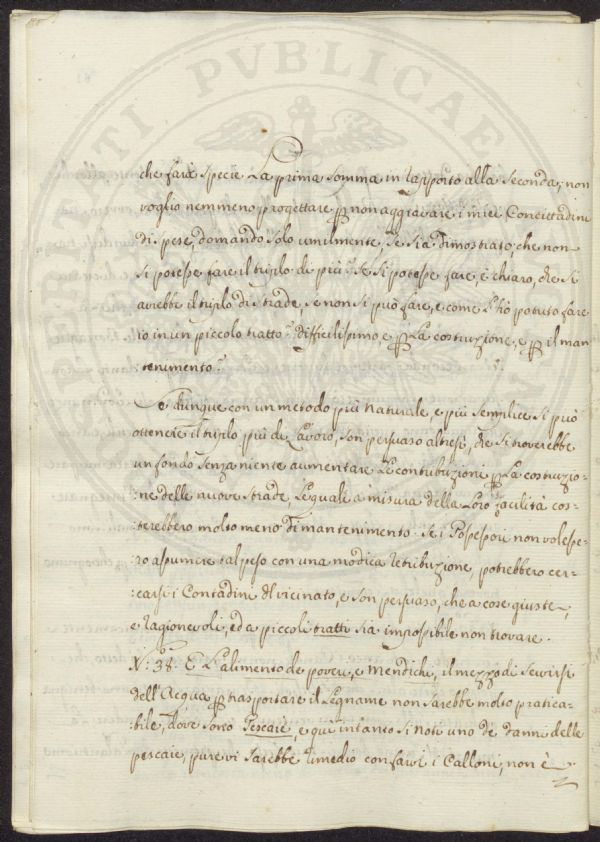 PVBLICAE
che farà specie la prima somma in rapporto alla seconda; non
voglio nemmeno progettare p non aggravare i miei Concittadini
di spese, domando solo umilmente, se sia dimostrato, che non
si potesse fare il triplo di più: se si potesse fare, è chiaro, che si
avrebbe il triplo di strade, se non si può fare, e come l'hò potuto fare
io in un piccolo tratto difficilissimo, e p la costruzione, e p il man
:tenimento?
Se dunque con un metodo più naturale, e più semplice si può
ottenere il triplo più di lavoro, son persuaso altresì, che si troverebbe
un fondo senza niente aumentare le contribuzioni p la costruzio:
:ne delle nuove strade, le quali a misura della loro facilità cos:
:terebbero molto meno di mantenimento. Se i Possessori non volesse:
:ro assumere tal peso con una modica retribuzione, potrebbero cer:
:carsi i Contadini del vicinato, e son persuaso, che a cose giuste,
e ragionevoli, ed a piccoli tratti sia impossibile non trovare.
N: 38. E L'alimento de poveri, e mendichi, il mezzo di servirsi
dell'Acqua p trasportare il Legname non sarebbe molto pratica:
:bile, dove sono Pescaie, e quì intanto si noti uno de danni delle
pescaie, pure vi sarebbe rimedio con farvi i Calloni, non è